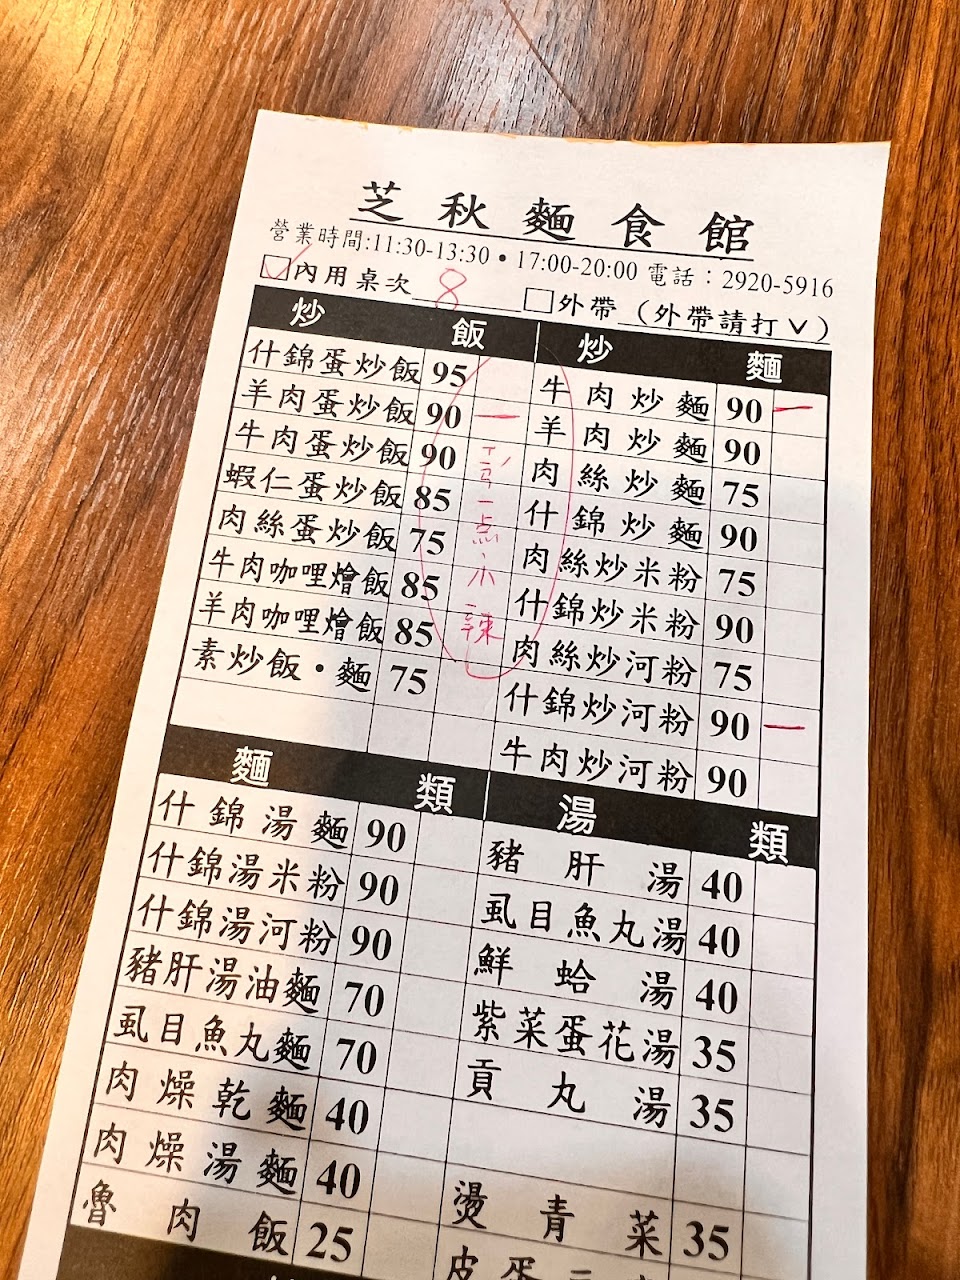 芝秋麵食館
營業時間:11:30-13:30•17:00-20:00 電話:2920-5916
☑內用桌次 8 □外帶(外帶請打∨)
炒飯
什錦蛋炒飯 95
羊肉蛋炒飯 90 一
牛肉蛋炒飯 90
蝦仁蛋炒飯 85
肉絲蛋炒飯 75
牛肉咖哩燴飯 85
羊肉咖哩燴飯 85
素炒飯・麵 75
一点小辣
炒麵
牛肉炒麵 90 一
羊肉炒麵 90
肉絲炒麵 75
什錦炒麵 90
肉絲炒米粉 75
什錦炒米粉 90
肉絲炒河粉 75
什錦炒河粉 90 一
牛肉炒河粉 90
麵類
什錦湯麵 90
什錦湯米粉 90
什錦湯河粉 90
豬肝湯油麵 70
虱目魚丸麵 70
肉燥乾麵 40
肉燥湯麵 40
魯肉飯 25
湯類
豬肝湯 40
虱目魚丸湯 40
鮮蛤湯 40
紫菜蛋花湯 35
貢丸湯 35
燙青菜 35
皮蛋